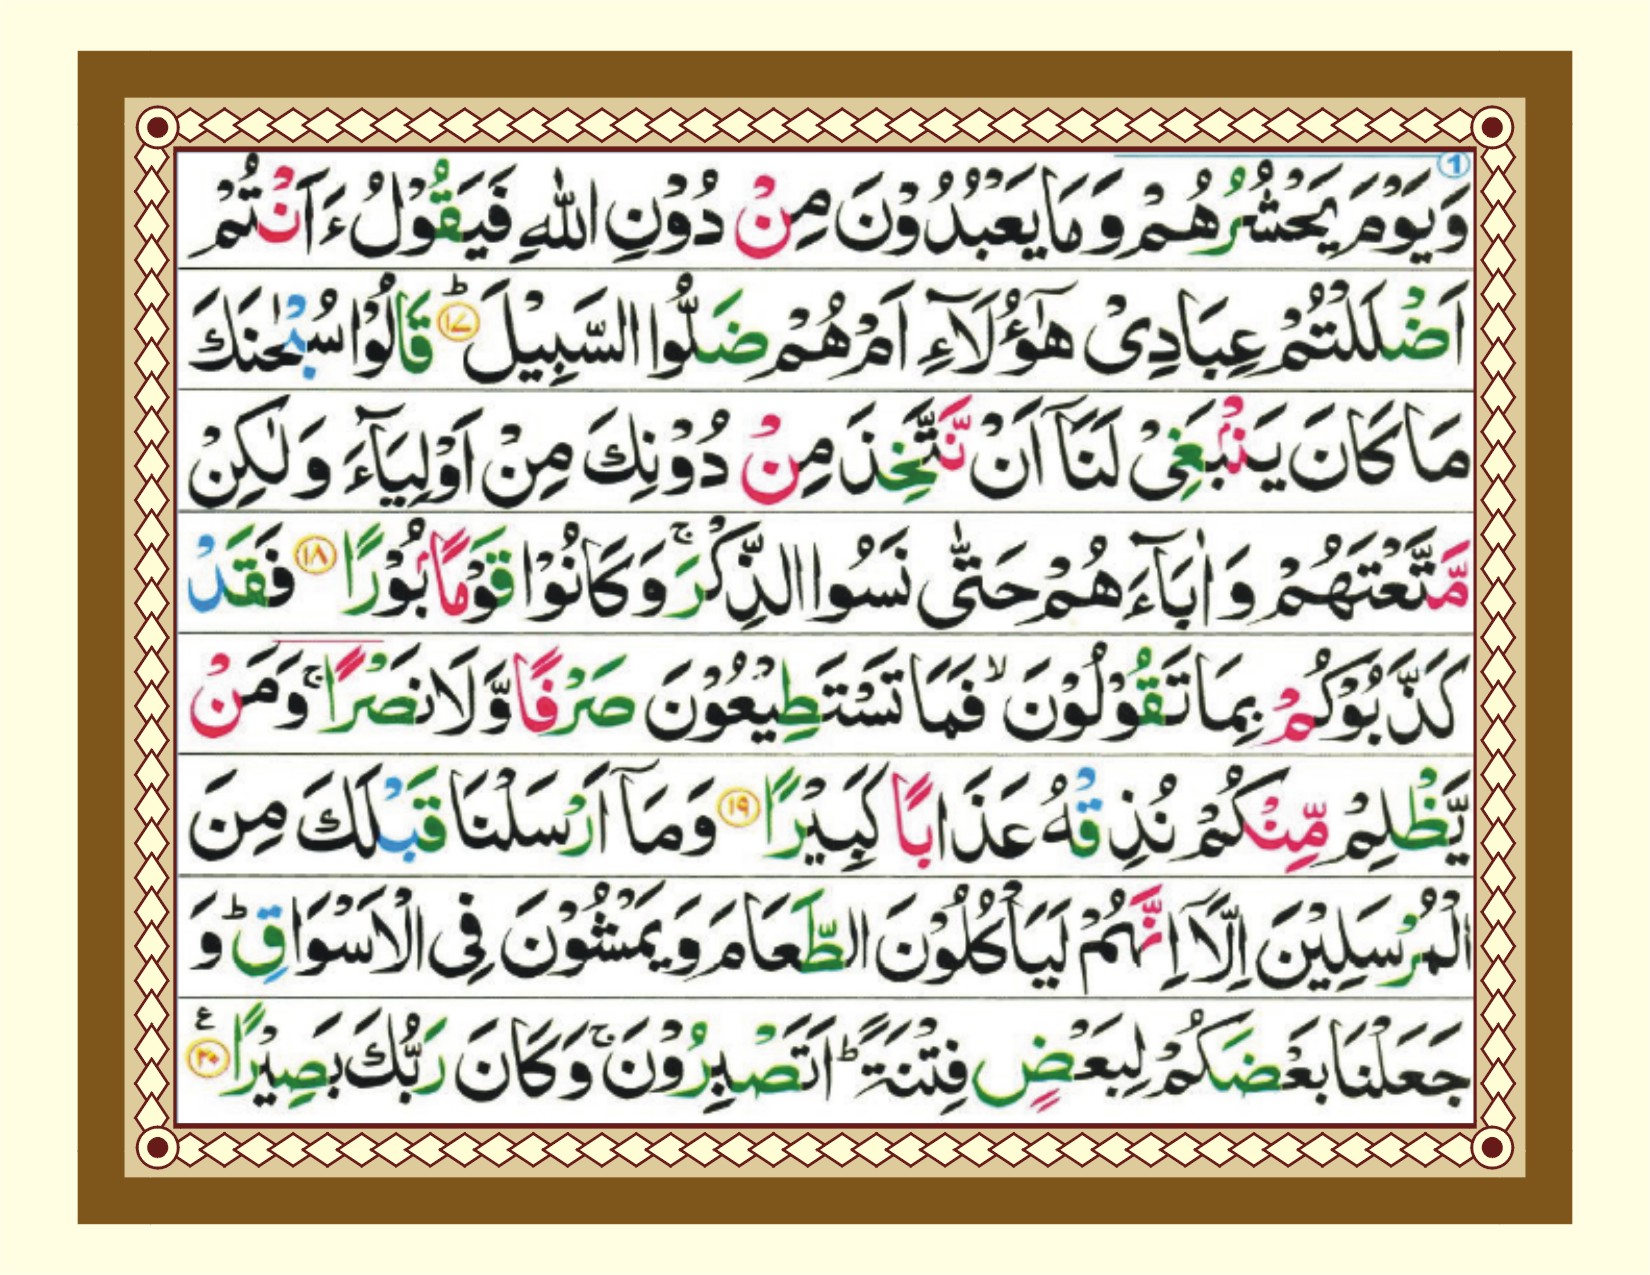 وَيَوْمَ يَحْشُرُهُمْ وَمَا يَعْبُدُوْنَ مِنْ دُوْنِ اللّٰهِ فَيَقُوْلُ ءَاَنْتُمْ
اَضْلَلْتُمْ عِبَادِىْ هٰٓؤُلَآءِ اَمْ هُمْ ضَلُّوا السَّبِيْلَؕ ۱۷ قَالُوْا سُبْحٰنَكَ
مَا كَانَ يَنْۢبَغِىْ لَنَاۤ اَنْ نَّتَّخِذَ مِنْ دُوْنِكَ مِنْ اَوْلِيَآءَ وَلٰكِنْ
مَّتَّعْتَهُمْ وَاٰبَآءَهُمْ حَتّٰى نَسُوا الذِّكْرَۚ وَكَانُوْا قَوْمًۢا بُوْرًا ۱۸ فَقَدْ
كَذَّبُوْكُمْ بِمَا تَقُوْلُوْنَۙ فَمَا تَسْتَطِيْعُوْنَ صَرْفًا وَّلَا نَصْرًاۚ وَمَنْ
يَّظْلِمْ مِّنْكُمْ نُذِقْهُ عَذَابًا كَبِيْرًا ۱۹ وَمَاۤ اَرْسَلْنَا قَبْلَكَ مِنَ
الْمُرْسَلِيْنَ اِلَّاۤ اِنَّهُمْ لَيَاْكُلُوْنَ الطَّعَامَ وَيَمْشُوْنَ فِى الْاَسْوَاقِؕ وَ
جَعَلْنَا بَعْضَكُمْ لِبَعْضٍ فِتْنَةًؕ اَتَصْبِرُوْنَۚ وَكَانَ رَبُّكَ بَصِيْرًا ۲۰ ع